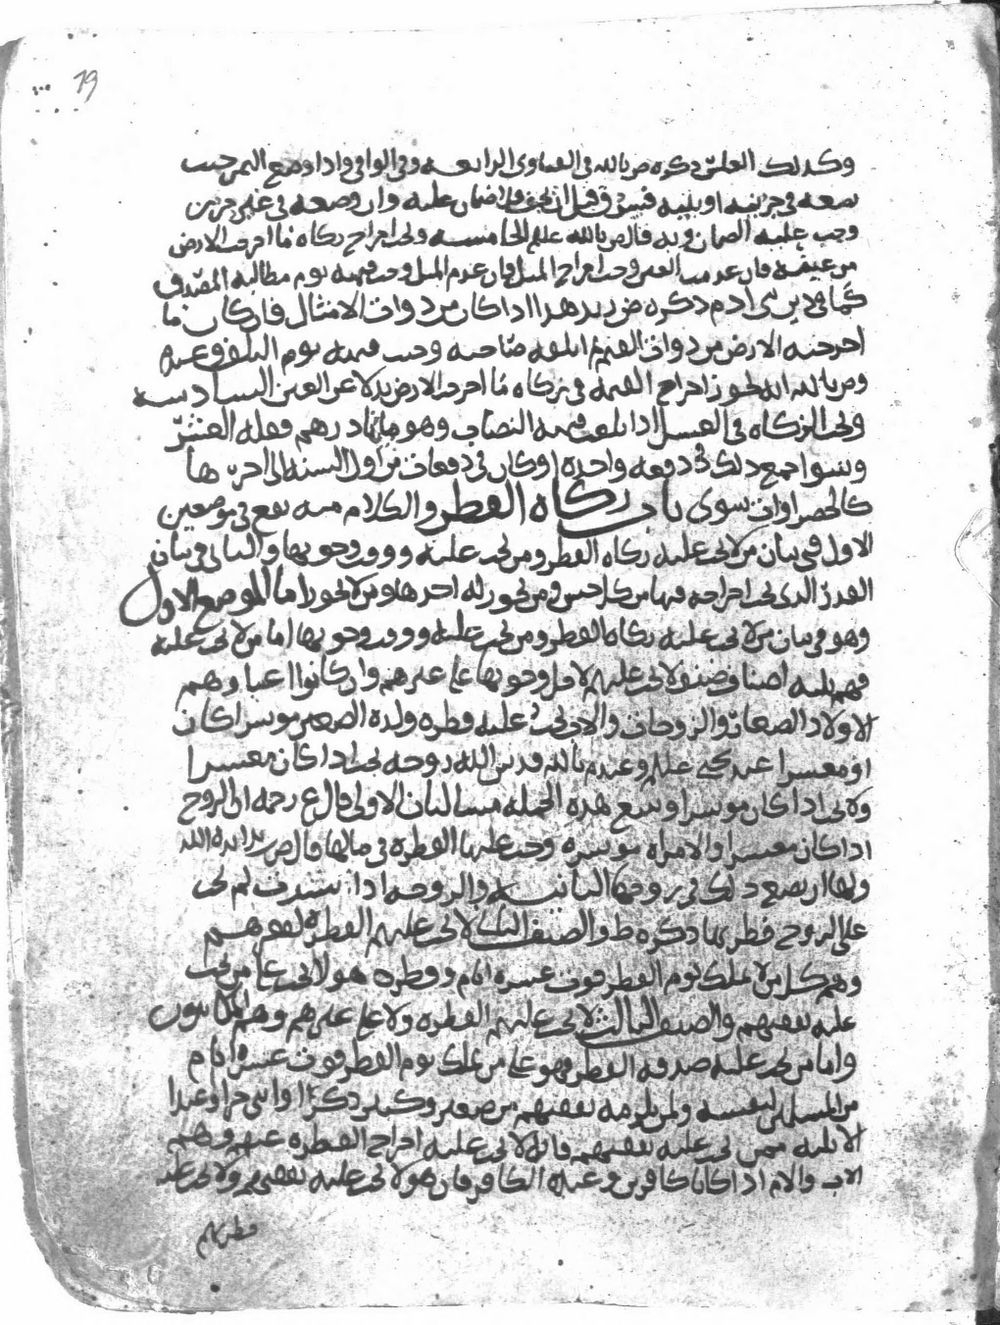 79
وكذلك العلس ذكره ص بالله في الفتاوى الرابعة وفي الوافي واذا وضع الثمر حيث
يضعه في جرينه او بيته فسرق وتلف فلا ضمان عليه وان وضعه في غير جرين
وجب عليه الضمان وبه قال ص بالله علم الخامسة وتجب اخراج زكاة ما اخرجت الارض
من عينه فان عدمت العين وجب اخراج المثل فان عدم المثل وجب قيمته يوم مطالبة المصدق
كما في دين بني ادم ذكره ض زيد هذا اذا كان من ذوات الامثال فان كان ما
اخرجته الارض من ذوات القيم اتلفه صاحبه وجب قيمته يوم التلف وعند
وص بالله انه يجوز اخراج القيمة في زكاة ما اخرجت الارض بدلا عن العين السادسة
وتجب الزكاة في العسل اذا بلغت قيمته النصاب وهو مائتا درهم ففيه العشر
وسوا جمع ذلك في دفعة واحدة او كان في دفعات من اول السنة الى اخرها
كالخضراوات سوى باب زكاة الفطر والكلام منه يقع في موضعين
الاول في بيان من لا تجب عليه زكاة الفطر ومن تجب عليه ووقت وجوبها والثاني في بيان
القدر الذي تجب اخراجه فيها من كل جنس ومن يجوز له اخذها ومن لا يجوز اما الموضع الاول
وهو في بيان من لا تجب عليه زكاة الفطر ومن تجب عليه ووقت وجوبها اما من لا تجب عليه
فهم ثلاثة اصناف صنف لا تجب عليهم لاجل وجوبها على غيرهم وان كانوا اغنيا وهم
الاولاد الصغار والزوجات والاب تجب عليه فطرة ولده الصغير موسرا كان
او معسرا عند يحيى علم وعند م بالله قدس الله روحه تجب اذا كان معسرا
ولا تجب اذا كان موسرا ويتبع هذه الجملة مسالتان الاولى قال ع رحمه الله الزوج
اذا كان معسرا والامراة موسرة وجب عليها الفطرة في مالها قال ص بالله ايده الله
ولها ان تصنع ذلك في زوجها الثانية والزوجة اذا نشزت لم تجب
على الزوج فطرتها ذكره ط والصنف الثاني لا تجب عليهم الفطرة لفقرهم
وهم كل من لا يملك يوم الفطر قوت عشرة ايام وفطرة هولا تجب على من تجب
عليه نفقتهم والصنف الثالث لا تجب عليهم الفطرة ولا على غيرهم وهم المكاتبون
واما من تجب عليه صدقة الفطر فهو على من يملك يوم الفطر قوت عشرة ايام
من المسلمين لنفسه ولمن يلزمه نفقتهم من صغير وكبير ذكرا او انثى حرا او عبدا
الا ثلاثة ممن تجب عليه نفقتهم فانه لا تجب عليه اخراج الفطرة عنهم وهم
الاب والام اذا كانا كافرين وعبده الكافر فان هولا تجب عليه نفقتهم ولا تجب عليه
فطرتهم